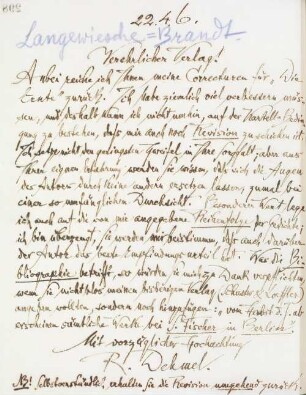 22.4.6.
Langewiesche-Brandt.
Verehrlicher Verlag!
Anbei reiche ich Ihnen meine Correcturen für „Die
Ernte“ zurück. Ich habe ziemlich viel verbessern müs-
sen, und deshalb kann ich nicht umhin, auf der Kartell-Bedin-
gung zu bestehen, daß mir auch noch Revision zu schicken ist.
Ich setze nicht den geringsten Zweifel in Ihre Sorgfalt; aber aus
Ihrer eigenen Erfahrung werden Sie wissen, daß sich die Augen
des Autors durch keine andern ersetzen lassen, zumal bei
einer so umfänglichen Durchsicht. Besonderen Wert lege
ich auch auf die von mir angegebene Reihenfolge der Gedichte;
ich bin überzeugt, Sie werden mir beistimmen, daß auch darüber
der Autor das beste Urteil hat. Was die Bi-
bliographie betrifft, so würden Sie mich zu Dank verpflichten,
wenn Sie nicht blos meinen bisherigen Verlag Schuster & Loeffler
angeben wollten, sondern noch hinzufügen: „von Herbst d. J. ab
erscheinen sämtliche Werke bei S. Fischer in Berlin“.
Mit vorzüglicher Hochachtung
R. Dehmel.
NB! Selbstverständlich erhalten Sie die Revision umgehend zurück.